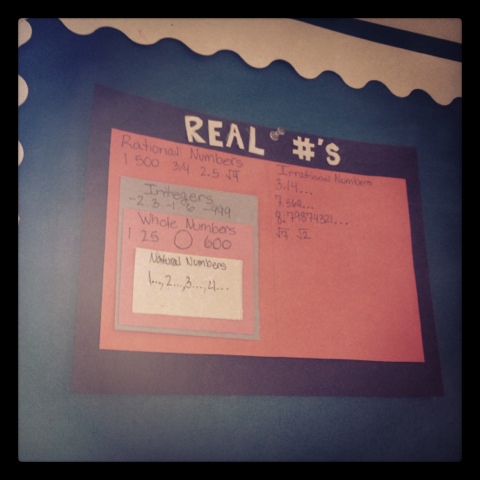 REAL #'S
Rational Numbers
1 500 3/4 2.5 √9
Integers
-2 3 -1 6 -999
Whole Numbers
1 25 0 600
Natural Numbers
1...,2...,3...,4...
Irrational Numbers
3.14...
8.79874321...
√2